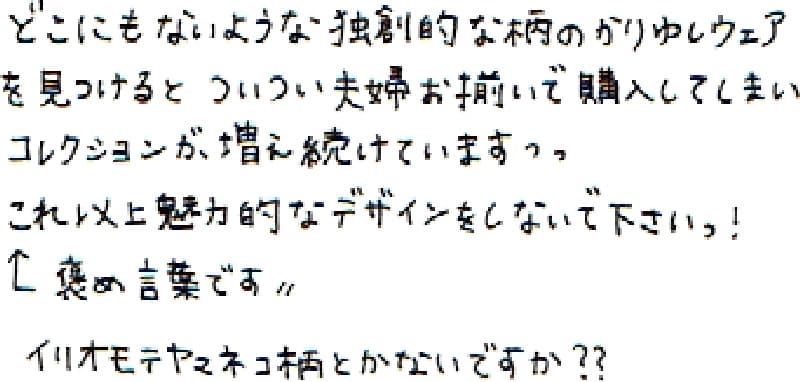 どこにもないような独創的な柄のかりゆしウェア
を見つけると ついつい夫婦お揃いで購入してしまい
コレクションが、増え続けていますっっ
これ以上魅力的なデザインをしないで下さいっ!
↑ 褒め言葉です〃
イリオモテヤマネコ柄とかないですか??